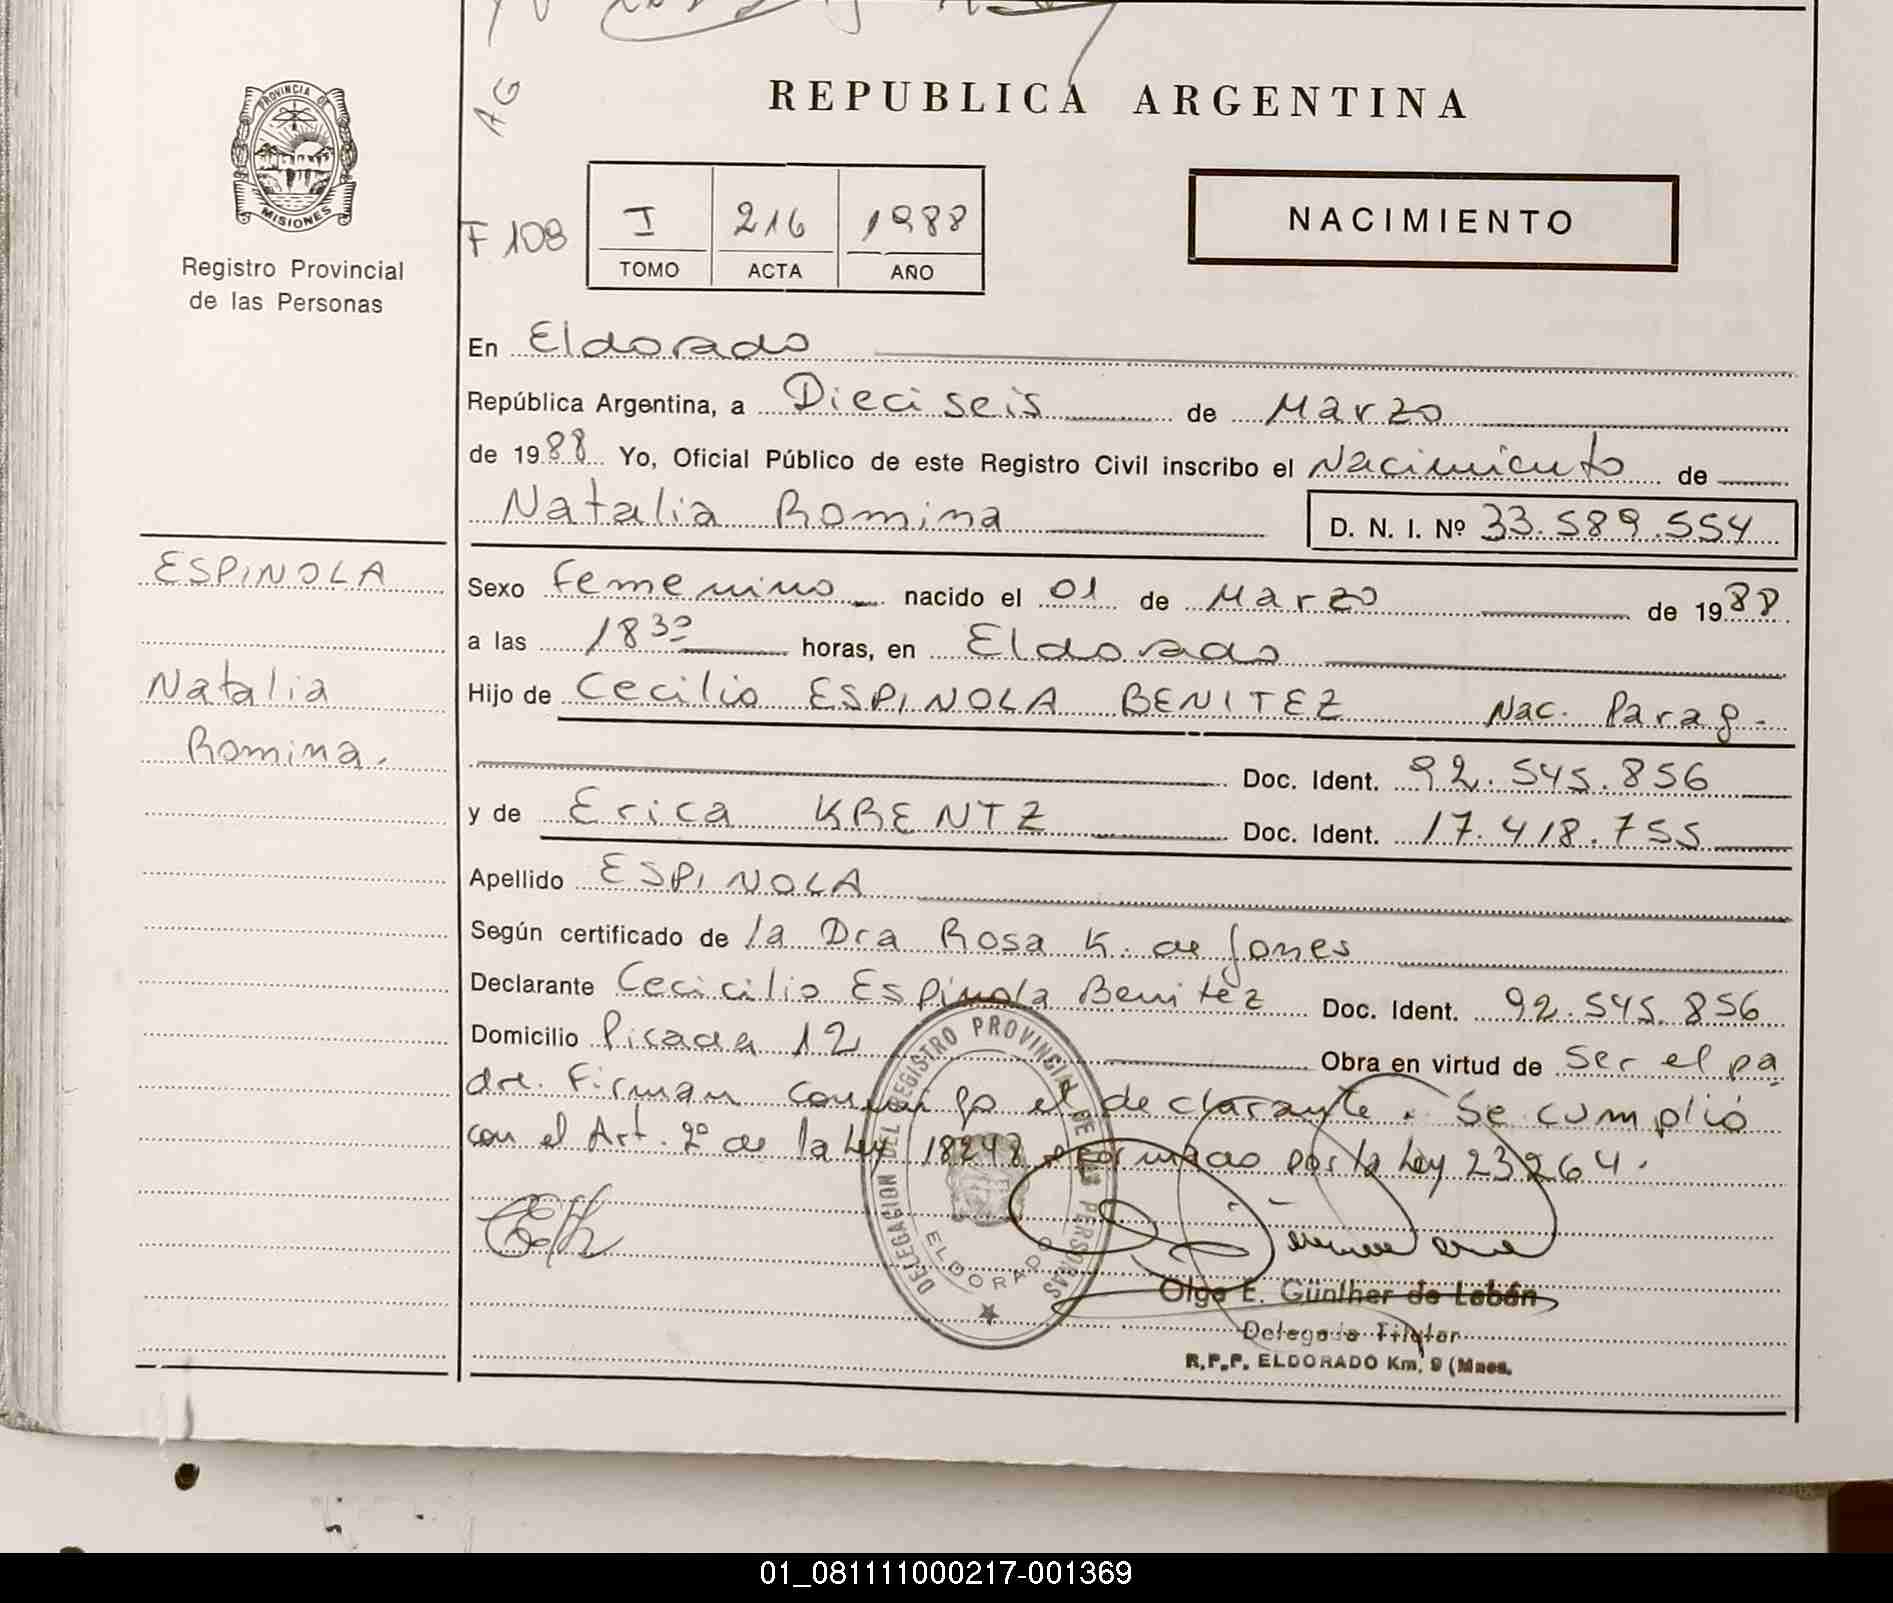 AG
REPUBLICA ARGENTINA
PROVINCIA DE
MISIONES
Registro Provincial
de las Personas
F 108
I 216 1988
TOMO ACTA AÑO
NACIMIENTO
En Eldorado
República Argentina, a Dieciseis de Marzo
de 1988 Yo, Oficial Público de este Registro Civil inscribo el Nacimiento de
Natalia Romina D. N. I. Nº 33.589.554
ESPINOLA
Natalia
Romina.
Sexo Femenino nacido el 01 de Marzo de 1988
a las 18 30 horas, en Eldorado
Hijo de Cecilio ESPINOLA BENITEZ Nac. Parag.
Doc. Ident. 92.545.856
y de Erica KRENTZ Doc. Ident. 17.418.755
Apellido ESPINOLA
Según certificado de la Dra Rosa K. de Jones
Declarante Cecicilio Espinola Benitez Doc. Ident. 92.545.856
Domicilio Picada 12 Obra en virtud de Ser el pa
dre. Firman conmigo el declarante. Se cumplió
con el Art. 2º de la Ley 18248 reformado por la Ley 23264.
DELEGACION DEL REGISTRO PROVINCIAL DE LAS PERSONAS
ELDORADO
Olga E. Günther de Lebán
Delegada Titular
R.P.P. ELDORADO Km. 9 (Mnes.
01_081111000217-001369